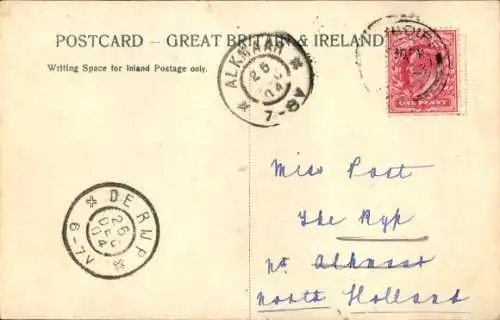 POSTCARD – GREAT BRITAIN & IRELAND
Writing Space for Inland Postage only.
ALKMAAR
25 DEC 04
7-8V
ONE PENNY
DE RIJP
26 DEC 04
6-7V
Miss Post
The Ryp
nr Alkmaar
North Holland